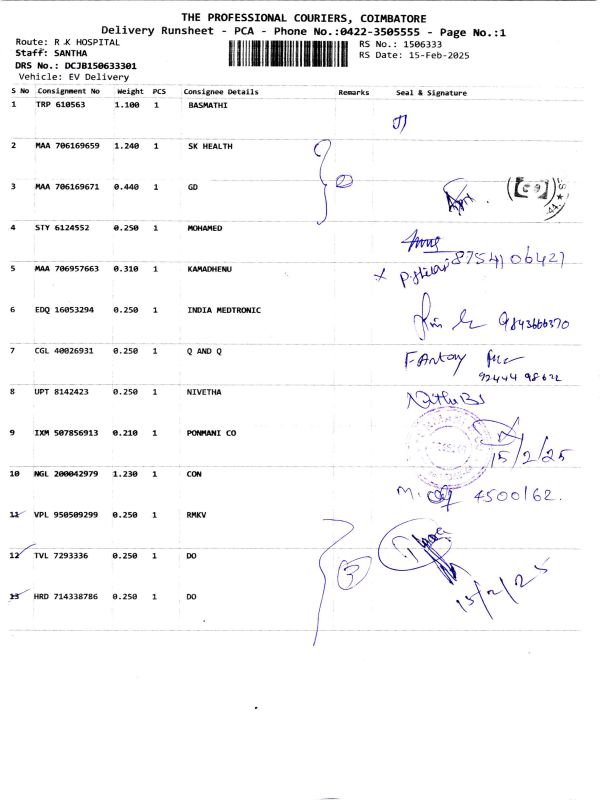 THE PROFESSIONAL COURIERS, COIMBATORE
Delivery Runsheet - PCA - Phone No.:0422-3505555 - Page No.:1
Route: R K HOSPITAL
Staff: SANTHA
DRS No.: DCJB150633301
Vehicle: EV Delivery
RS No.: 1506333
RS Date: 15-Feb-2025
S No Consignment No Weight PCS Consignee Details Remarks Seal & Signature
1 TRP 610563 1.100 1 BASMATHI
2 MAA 706169659 1.240 1 SK HEALTH
3 MAA 706169671 0.440 1 GD
4 STY 6124552 0.250 1 MOHAMED
8754106427
5 MAA 706957663 0.310 1 KAMADHENU
6 EDQ 16053294 0.250 1 INDIA MEDTRONIC
9843666370
7 CGL 40026931 0.250 1 Q AND Q
F Antony
8 UPT 8142423 0.250 1 NIVETHA
9 IXM 507856913 0.210 1 PONMANI CO
15/2/25
10 NGL 200042979 1.230 1 CON
4500162.
11 VPL 950509299 0.250 1 RMKV
12 TVL 7293336 0.250 1 DO
3
13 HRD 714338786 0.250 1 DO
15/2/25